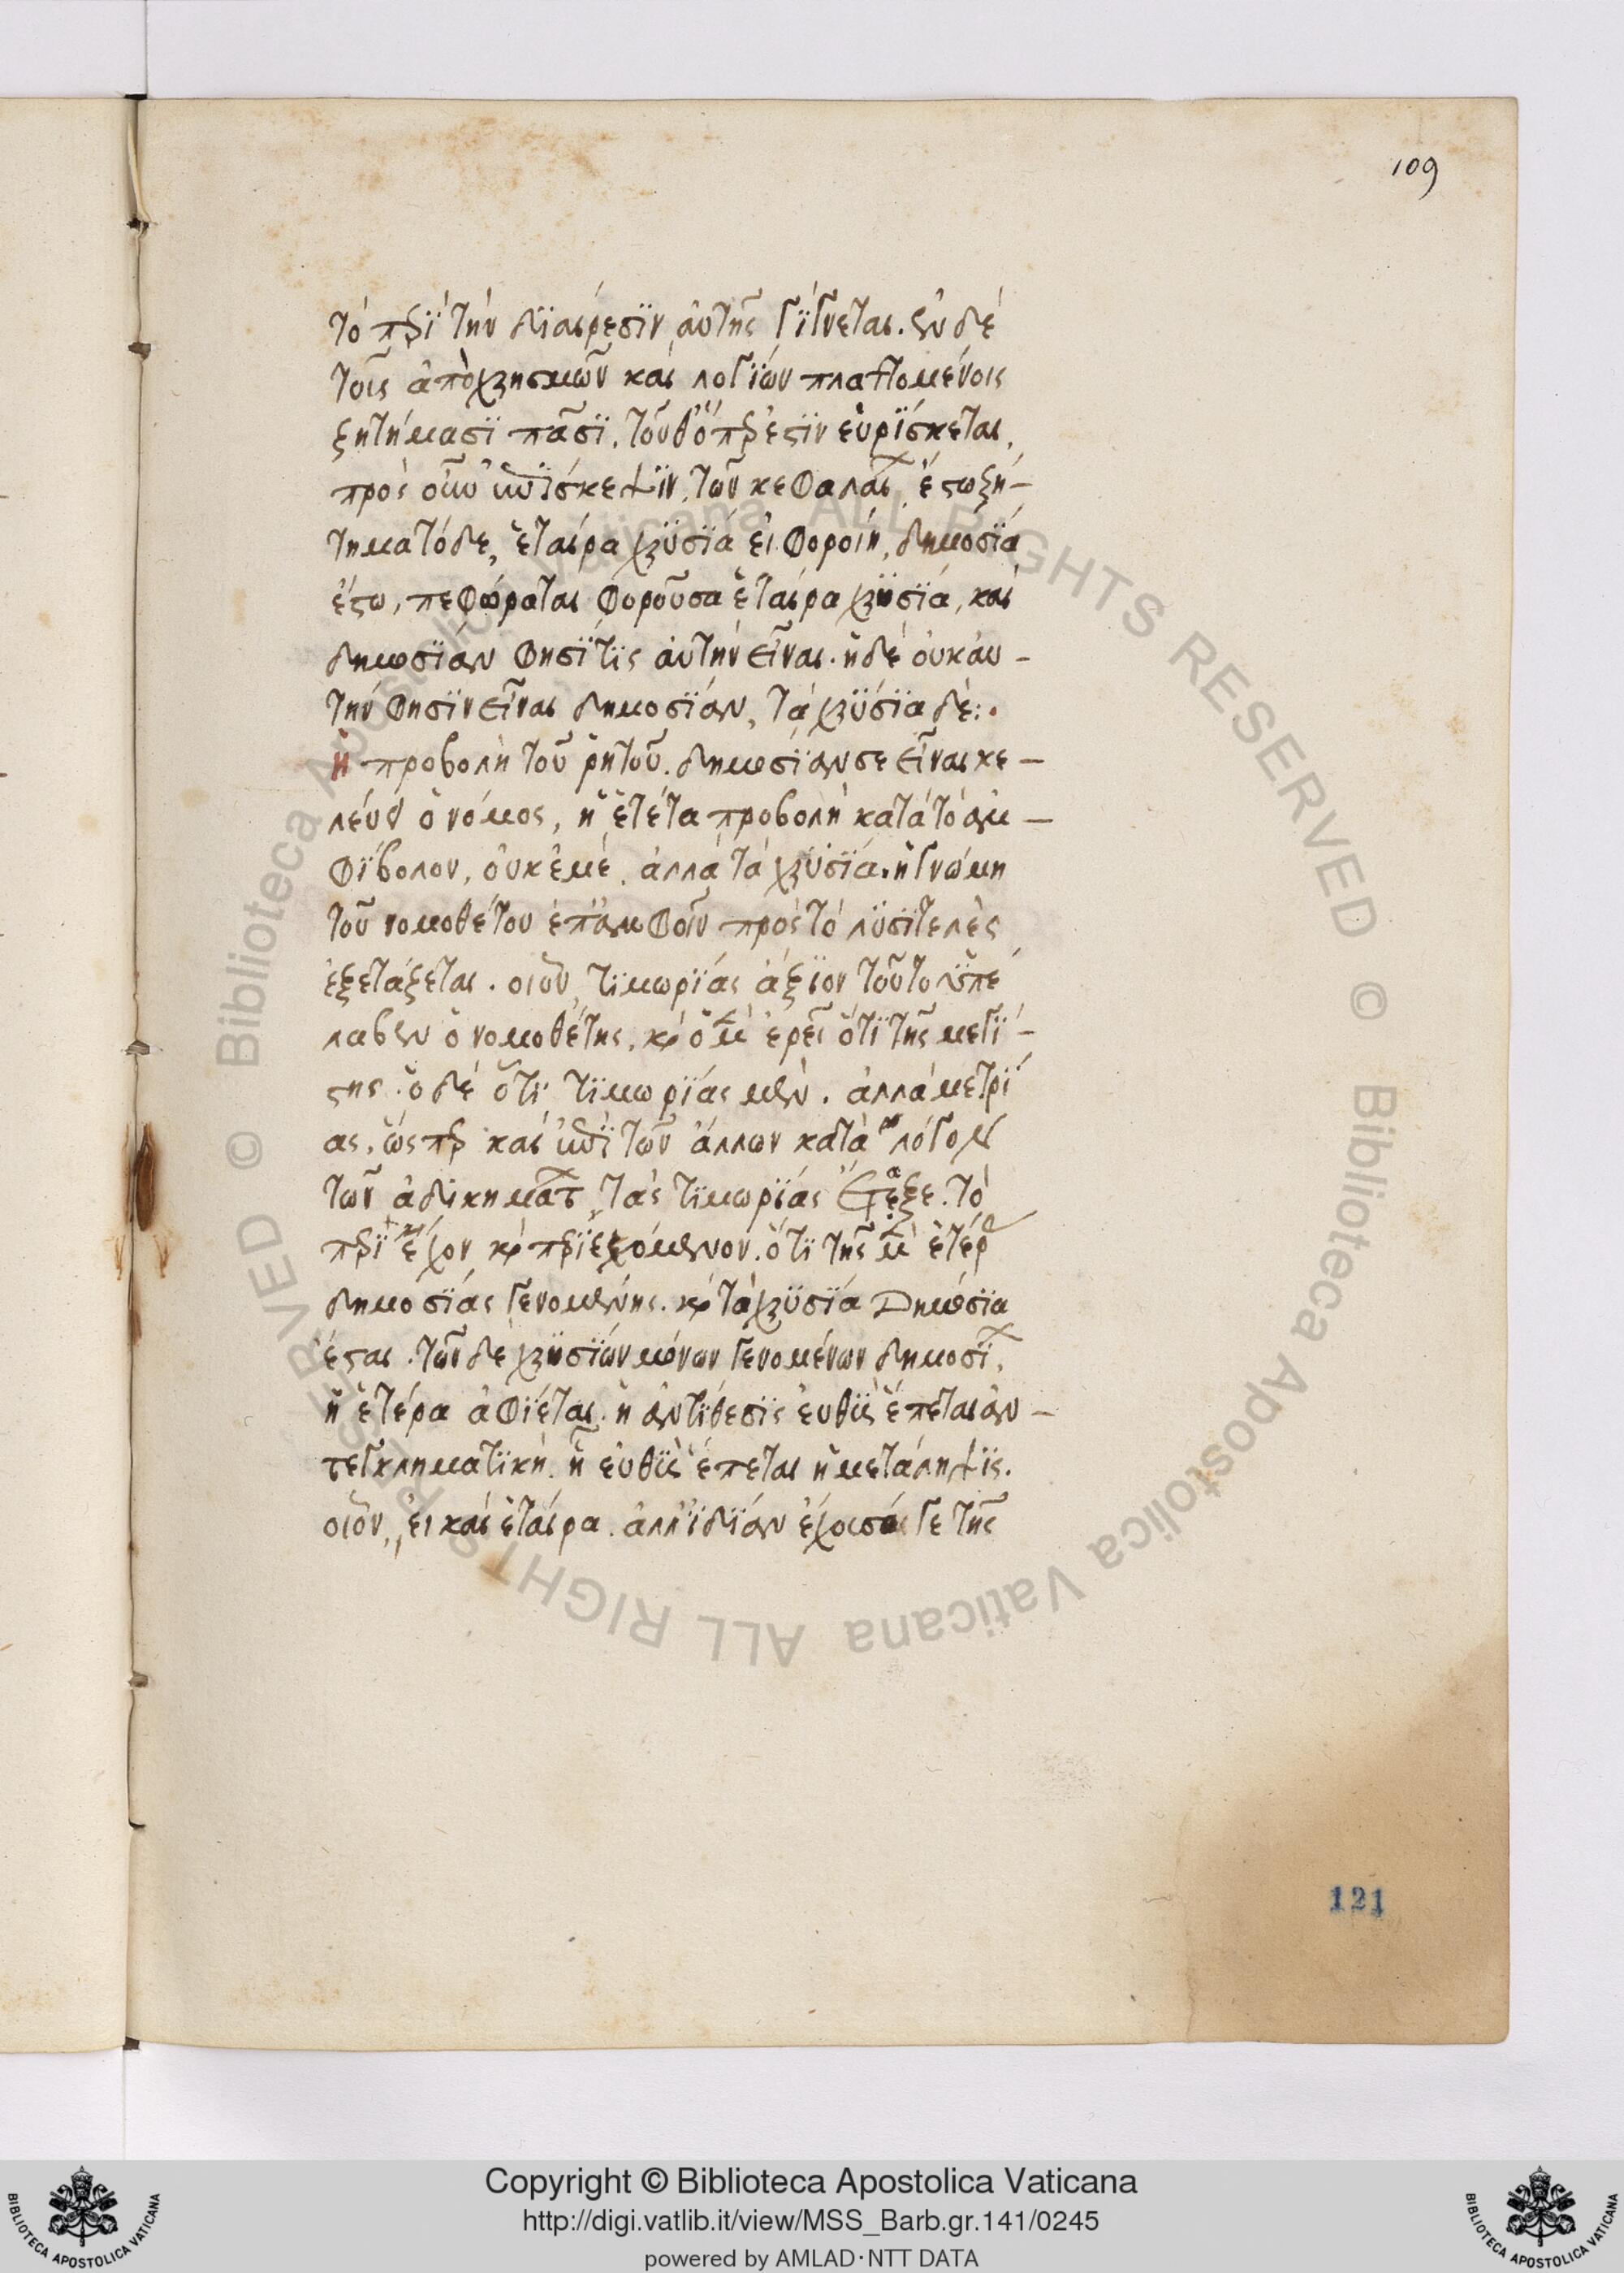 109
τὸ περὶ τὴν διαίρεσιν αὐτῆς γίγνεται. ἐν δὲ
τοῖς ἀπὸ χρησμῶν καὶ λογίων πλαττομένοις
ζητήμασι πᾶσι, τοῦθ' ὅπερ ἐστὶν εὑρίσκεται,
πρὸς οὖν ἐπίσκεψιν τῶν κεφαλαί ἔστω ζή-
τημα τόδε, ἑταίρα χρυσία εἰ φοροίη, δημόσια
ἔστω, πεφώραται φοροῦσα ἑταίρα χρυσία, καὶ
δημοσίαν φησί τις αὐτὴν εἶναι. ἡ δὲ οὐκ αὐ-
τήν φησιν εἶναι δημοσίαν, τὰ χρυσία δέ:.
Ἡ προβολὴ τοῦ ῥητοῦ. δημοσίαν σε εἶναι κε-
λεύει ὁ νόμος, ἡ ἑτέρα προβολὴ κατὰ τὸ ἀμ-
φίβολον, οὐκ ἐμέ, ἀλλὰ τὰ χρυσία. ἡ γνώμη
τοῦ νομοθέτου ἐπ' ἀμφοῖν πρὸς τὸ λυσιτελὲς
ἐξετάζεται. οἷον, τιμωρίας ἄξιον τοῦτο ὑπέ
λαβεν ὁ νομοθέτης, καὶ ὁ μὲν ἐρεῖ ὅτι τῆς μεγί-
στης. ὁ δὲ ὅτι τιμωρίας μὲν. ἀλλὰ μετρί
ας, ὥσπερ καὶ ἐπὶ τῶν ἄλλων κατὰ λόγον
τῶν ἀδικημάτ τὰς τιμωρίας ἔταξε. τὸ
περιέχον καὶ περιεχόμενον. ὅτι τῆς μὲν ἑτέρ
δημοσίας γενομένης, καὶ τὰ χρυσία Δημόσια
ἔσται. τῶν δὲ χρυσίων μόνων γενομένων δημοσί,
ἡ ἑτέρα ἀφίεται. ἡ ἀντίθεσις εὐθὺς ἕπεται ἀν-
τεγκληματική. ᾗ εὐθὺς ἕπεται ἡ μετάληψις.
οἷον, εἰ καὶ ἑταίρα. ἀλλ' ἰδίαν τῆς
121
Copyright © Biblioteca Apostolica Vaticana
http://digi.vatlib.it/view/MSS_Barb.gr.141/0245
powered by AMLAD·NTT DATA
BIBLIOTECA APOSTOLICA VATICANA
BIBLIOTECA APOSTOLICA VATICANA